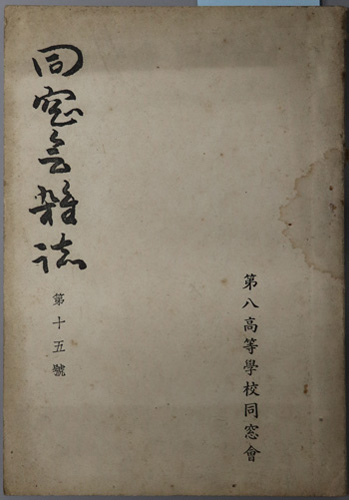 第八高等學校同窓會
同窓会雜誌
第十五號